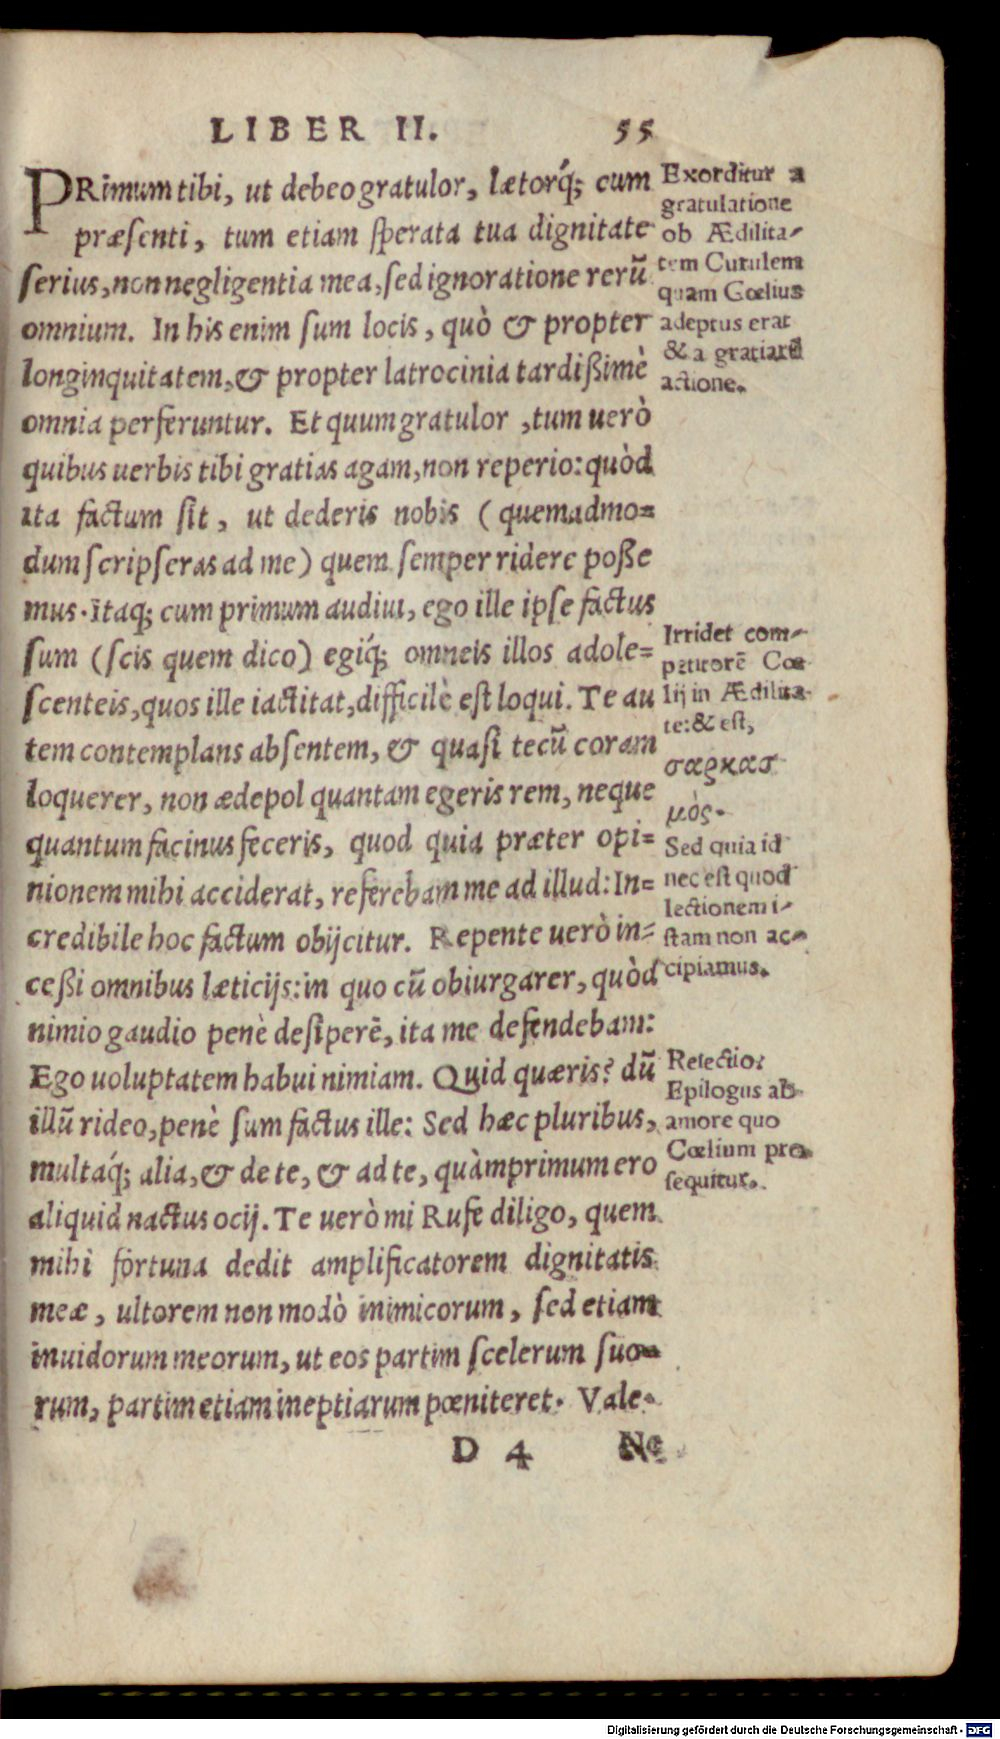 LIBER II. 55
PRimum tibi, ut debeo gratulor, lætorq́; cum
præsenti, tum etiam sperata tua dignitate
serius, non negligentia mea, sed ignoratione rerũ
omnium. In his enim sum locis, quò & propter
longinquitatem, & propter latrocinia tardißimè
omnia perferuntur. Et quum gratulor, tum uerò
quibus uerbis tibi gratias agam, non reperio: quòd
ita factum sit, ut dederis nobis (quemadmo=
dum scripseras ad me) quem semper ridere poße
mus. Itaq; cum primum audiui, ego ille ipse factus
sum (scis quem dico) egiq́; omneis illos adole=
scenteis, quos ille iactitat, difficilè est loqui. Te au
tem contemplans absentem, & quasi tecũ coram
loquerer, non ædepol quantam egeris rem, neque
quantum facinus feceris, quod quia præter opi=
nionem mihi acciderat, referebam me ad illud: In=
credibile hoc factum obijcitur. Repente uerò in=
ceßi omnibus læticijs: in quo cũ obiurgarer, quòd
nimio gaudio penè desiperẽ, ita me defendebam:
Ego uoluptatem habui nimiam. Quid quæris? dũ
illũ rideo, penè sum factus ille: Sed hæc pluribus,
multaq́; alia, & de te, & ad te, quàmprimum ero
aliquid nactus ocij. Te uerò mi Rufe diligo, quem
mihi fortuna dedit amplificatorem dignitatis
meæ, ultorem non modò inimicorum, sed etiam
inuidorum meorum, ut eos partim scelerum suo=
rum, partim etiam ineptiarum pœniteret. Vale.
D 4 Ne
Exorditur a
gratulatione
ob Ædilita-
tem Curulem
quam Cœlius
adeptus erat
& a gratiarũ
actione.
Irridet com-
petitorẽ Cœ
lij in Ædilita-
te: & est,
σαρκασ
μὸς.
Sed quia id
nec est quod
lectionem i-
stam non ac-
cipiamus.
Reiectio:
Epilogus ab
amore quo
Cœlium pro
sequitur.
Digitalisierung gefördert durch die Deutsche Forschungsgemeinschaft - DFG